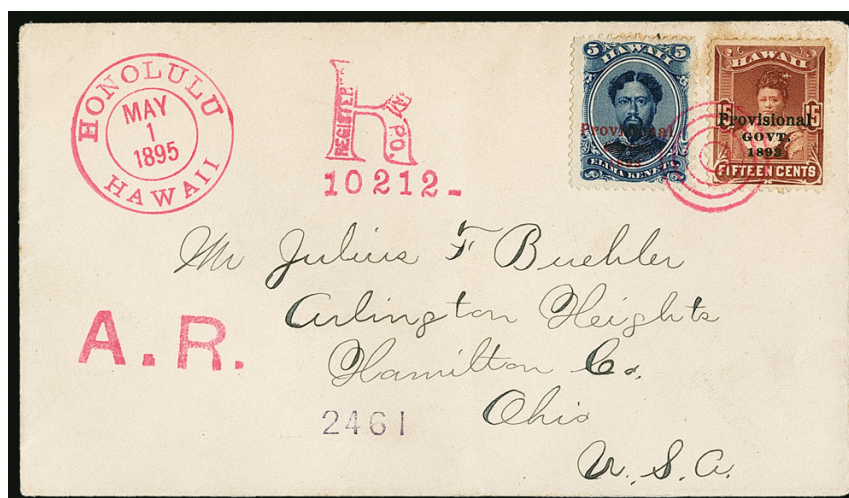 HONOLULU
MAY
1
1895
HAWAII
REGISTER
PO
10212-
5 HAWAII 5
Provisional
ELIMA KENETA
HAWAII
Provisional
GOVT.
1893
15
FIFTEEN CENTS
Mr Julius F Buehler
Arlington Heights
Hamilton Co.
Ohio
U.S.A.
A.R.
2461